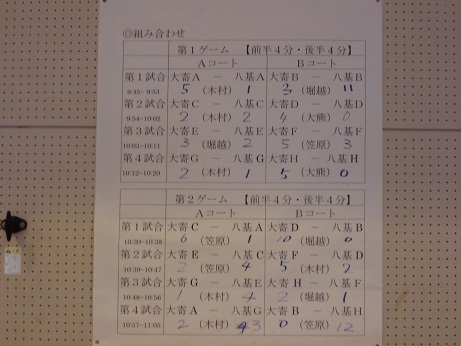 ◎組み合わせ
第1ゲーム 【前半4分・後半4分】
Aコート Bコート
第1試合 大寄A － 八基A 大寄B － 八基B
9:45~9:53 5 (木村) 1 3 (堀越) 11
第2試合 大寄C － 八基C 大寄D － 八基D
9:54~10:02 2 (木村) 2 4 (大熊) 0
第3試合 大寄E － 八基E 大寄F － 八基F
10:03~10:11 3 (堀越) 2 5 (笠原) 3
第4試合 大寄G － 八基G 大寄H － 八基H
10:12~10:20 2 (木村) 1 5 (大熊) 0
第2ゲーム 【前半4分・後半4分】
Aコート Bコート
第1試合 大寄C － 八基A 大寄D － 八基B
10:30~10:38 6 (笠原) 1 10 (堀越) 0
第2試合 大寄E － 八基C 大寄F － 八基D
10:39~10:47 2 (笠原) 4 5 (木村) 2
第3試合 大寄G － 八基E 大寄H － 八基F
10:48~10:56 1 (木村) 4 2 (堀越) 1
第4試合 大寄A － 八基G 大寄B － 八基H
10:57~11:05 2 (木村) 3 0 (笠原) 12